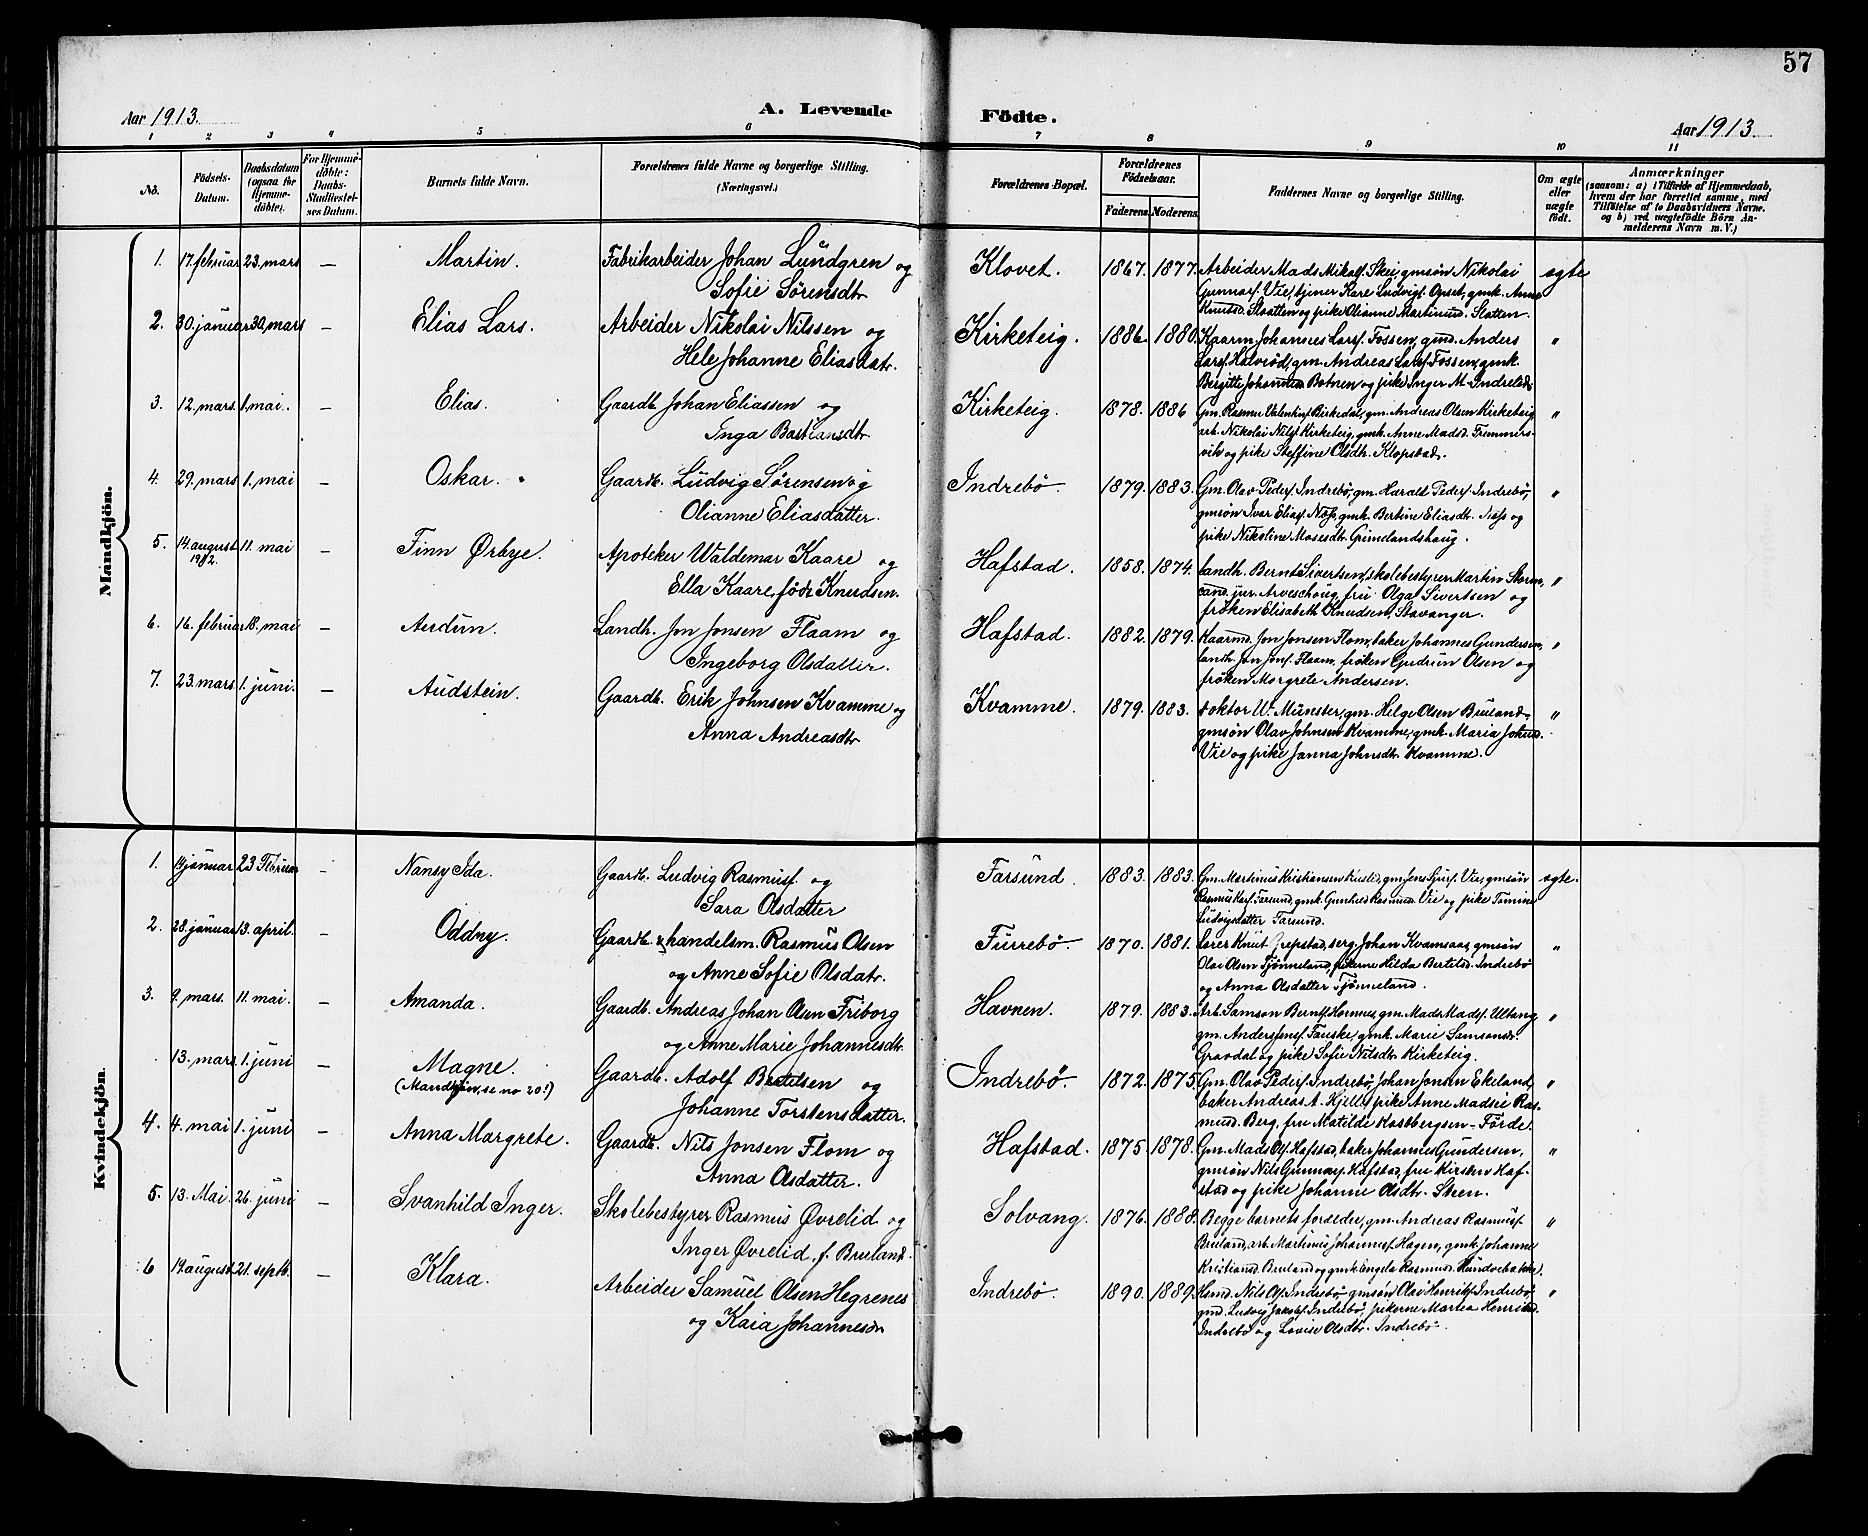 57
Aar 1913.
A. Levende
Födte.
Aar 1913.
1 2 3 4 5 6 7 8 9 10 11
No.
Födsels-
Datum.
Daabsdatum
(ogsaa for
Hjemme-
döbte).
For Hjemme-
döbte:
Daabs-
Stadfæstel-
ses Datum.
Barnets fulde Navn.
Forældrenes fulde Navne og borgerlige Stilling.
(Næringsvei.)
Forældrenes Bopæl.
Forældrenes
Födselsaar.
Faderens. Moderens.
Faddernes Navne og borgerlige Stilling.
Om ægte
eller
uægte
födt.
Anmærkninger
(saasom: a) i Tilfælde af Hjemmedaab,
hvem der har forrettet samme, med
Tilföielse af to Daabsvidners Navne.
og b) ved uægtefödte Börn An-
melderens Navn m. V.)
Mandkjön.
1. 17 februar 23. mars — Martin. Fabrikarbeider Johan Lundgren og
Sofie Sørensdtr
Klovet. 1867. 1877. Arbeider Mads Mikalf. Skei, gmsøn Nikolai
Gunnarf. Vie, tjener Kare Ludvigf. Opset, gmk. Anne
Knutsd. Slaatten og pike Olianne Martinusd. Slatten.
ægte
2. 30. januar 30. mars — Elias Lars. Arbeider Nikolai Nilssen og
Hele Johanne Eliasdatr.
Kirketeig. 1886. 1880. Kaarm Johannes Larsf. Fossen, gmd. Anders
Larsf. Halvröd, gm. Andreas Larsf. Fossen, gmk.
Birgitte Johannesd. Botnen og pike Inger M. Indrelid.
"
3. 12. mars. 1. mai. — Elias. Gaardb. Johan Eliassen og
Inga Bastiansdtr.
Kirketeig. 1878. 1886 Gm. Rasmus Valentinf. Birkedal, gm. Andreas Olsen Kirketeig
arb. Nikolai Nilsf. Kirketeig, gmk. Anne Madsd. Fremmers-
vik og pike Steffine Olsdtr. Klopstad.
"
4. 29. mars 1. mai — Oskar. Gaardb. Ludvig Sørensen og
Olianne Eliasdatter.
Indrebö. 1879. 1883. Gm. Olav Pedersf. Indrebö, gm. Harald Pedersf. Indrebö,
gmsøn Ivar Eliasf. Næss, gmk. Bertine Eliasdtr. Næss og
pike Nikoline Mosesdtr. Grimelandshaug.
"
5. 14. august 1912. 11. mai — Finn Ørbye. Apoteker Waldemar Kaare og
Ella Kaare, födt Knudsen.
Hafstad. 1858. 1874. Landh. Bernt Sivertsen, skolebestyrer Martin Storm,
cand. jur. Arveschoug, fru Olga Sivertsen og
fröken Elisabeth Knudsen, Stavanger.
"
6. 16. februar 18. mai — Audun. Landh. Jon Jonsen Flaam og
Ingeborg Olsdatter.
Hafstad. 1882. 1879. Kaarmd. Jon Jonsen Flom, baker Johannes Gundersen,
landh. Jon Jonf. Flaam, fröken Gudrun Olsen og
fröken Margrete Andersen.
"
7. 23. mars. 1. juni. — Audstein. Gaardb. Erik Johnsen Kvamme og
Anna Andreasdtr
Kvamme. 1879. 1883. Doktor W. Münster, gm. Helge Olsen Bruland,
gmsøn Olav Johnsen Kvamme, gmk. Maria Johnsd.
Vie og pike Janna Johnsdtr. Kvamme.
"
Kvindekjön.
1. januar 23 Februar — Nansy Ida. Gaardb. Ludvig Rasmusf. og
Sara Olsdatter
Farsund. 1883. 1883. Gm. Martinus Kristiansen, gm Jens Sjurf. Vie, gmsøn
Rasmus Farsund, gmk. Gunhild Rasmusd. Vie og pike Tomine
Ludvigsdatter Farsund.
ægte.
2. 28. januar 13. april. — Oddny. Gaardb. & handelsm. Rasmus Olsen
og Anne Sofie Olsdatr.
Furrebö. 1870. 1881. Lærer Knut Grepstad, serg. Johan Kvamsaas, gmsøn
Olai Olsen Tjönneland, pikerne Hilda Bertelsd. Indrebö
og Anna Olsdatter Tjönneland.
"
3. 9. mars. 11. mai. — Amanda. Gaardb. Andreas Johan Olsen Friborg
og Anne Marie Johannesdtr.
Havnen. 1879. 1883. Arb. Samson Berntf. Hornnes, gm. Mads Madsf. Ultang,
gm. Anders Jensf. Fauske, gmk. Marie Samsondtr.
Gravdal og pike Sofie Nilsdtr. Kirketeig.
"
13. mars 1. juni — Magne.
(Mandkjön, se no 20!)
Gaardb. Adolf Bertelsen og
Johanne Torstensdatter.
Indrebö. 1872. 1875. Gm. Olav Pedersf. Indrebö, Johan Jonsen Ekeland,
baker Andreas A. Hjelle, pike Anne Madsie Ras-
musd. Berg, fru Matilde Kastbergsen - Förde.
"
4. 4. mai 1. juni — Anna Margrete. Gaardb. Nils Jonsen Flom og
Anna Olsdatter.
Hafstad. 1875. 1878. Gm. Mads Olf. Hafstad, baker Johannes Gundersen,
gmsøn Nils Gunnarf. Hafstad, fru Kirsten Haf-
stad og pike Johanne Olsdtr. Steen.
"
5. 13. Mai. 26. juni — Svanhild Inger. Skolebestyrer Rasmus Øvrelid og
Inger Øvrelid, f. Bruland.
Solvang. 1876. 1888. Begge barnets foreldre, gm. Andreas Rasmusf.
Bruland, arb. Martinus Johannesf. Hagen, gmk. Johanne
Kristiansd. Bruland og gmk. Engela Rasmusd.
"
6 19. august 21. septb. — Klara. Arbeider Samuel Olsen Hegrenes
og Kaia Johannesdr
Indrebö. 1890. 1889. Husmd. Nils Olf. Indrebö, gmsøn Olav Henrikf. Indrebö,
gmd. Ludvig Jakobf. Indrebö, pikerne Martea Henriksd.
Indrebö og Lovise Olsdtr. Indrebö.
"